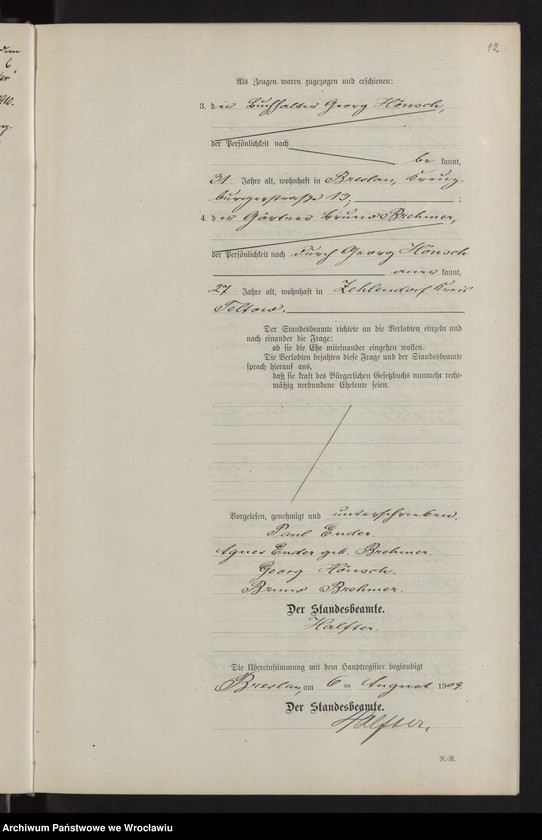 12
Als Zeugen waren zugezogen und erschienen:
3. der Buchhalter Georg Hönsch,
der Persönlichkeit nach
be kannt,
31 Jahre alt, wohnhaft in Breslau, Kreuz-
burgerstraße 13, ;
4. der Gärtner Bruno Brehmer,
der Persönlichkeit nach durch Georg Hönsch
aner kannt,
27 Jahre alt, wohnhaft in Zehlendorf Kreis
Teltow.
Der Standesbeamte richtete an die Verlobten einzeln und
nach einander die Frage:
ob sie die Ehe miteinander eingehen wollen.
Die Verlobten bejahten diese Frage und der Standesbeamte
sprach hierauf aus,
daß sie kraft des Bürgerlichen Gesetzbuchs nunmehr recht-
mäßig verbundene Eheleute seien.
Vorgelesen, genehmigt und unterschrieben.
Paul Ender.
Agnes Ender geb. Brehmer.
Georg Hönsch.
Bruno Brehmer.
Der Standesbeamte.
Halfter.
Die Übereinstimmung mit dem Hauptregister beglaubigt
Breslau, am 6 ten August 1909.
Der Standesbeamte.
Halfter.
R.-R.
Archiwum Państwowe we Wrocławiu